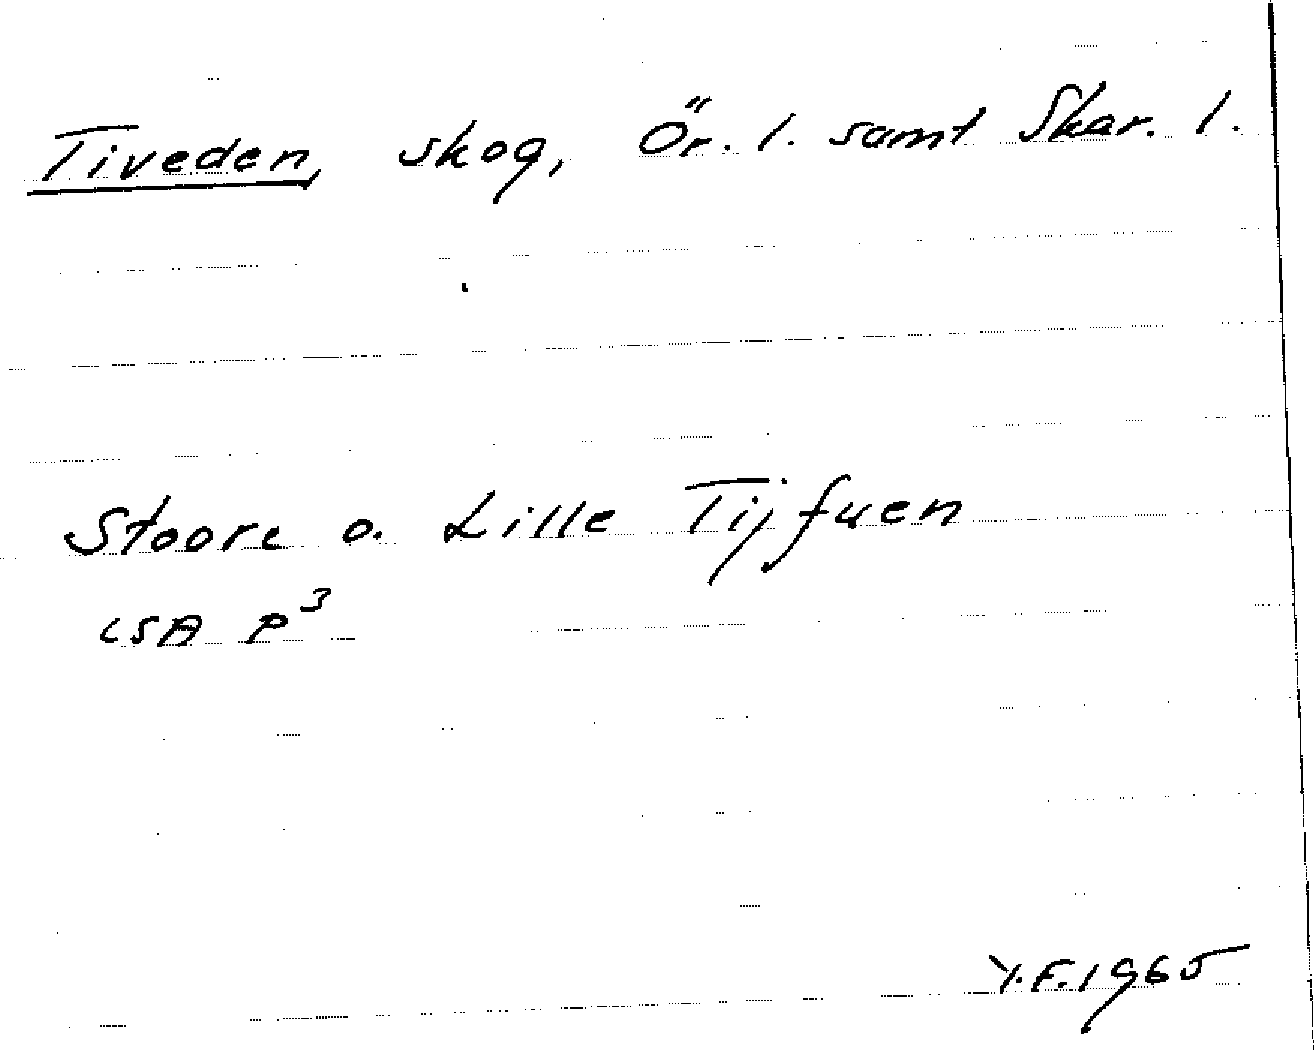 Tiveden, skog, Ör. l. samt Skar. l.
Stoore o. Lille Tijfuen
LSA P³
Y.F. 1965